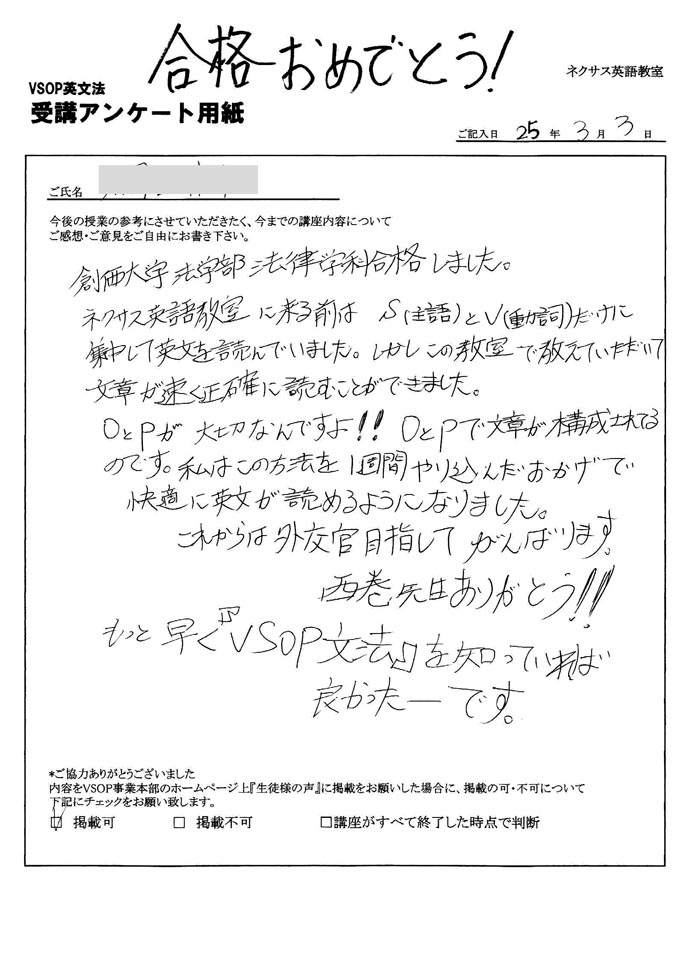 合格おめでとう!
VSOP英文法
ネクサス英語教室
受講アンケート用紙
ご記入日 25 年 3 月 3 日
ご氏名
今後の授業の参考にさせていただきたく、今までの講座内容について
ご感想・ご意見をご自由にお書き下さい。
創価大学法学部法律学科合格しました。
ネクサス英語教室に来る前は S(主語)とV(動詞)だけに
集中して英文を読んでいました。しかしこの教室で教えていただいて
文章が速く正確に読むことができました。
OとPが 大切なんですよ!! OとPで文章が構成されてる
のです。私はこの方法を1週間やり込んだおかげで
快適に英文が読めるようになりました。
これからは外交官目指して がんばります。
西巻先生ありがとう!!
もっと早く『VSOP文法』を知っていれば
良かったーです。
*ご協力ありがとうございました
内容をVSOP事業本部のホームページ上『生徒様の声』に掲載をお願いした場合に、掲載の可・不可について
下記にチェックをお願い致します。
☑ 掲載可 □ 掲載不可 □講座がすべて終了した時点で判断